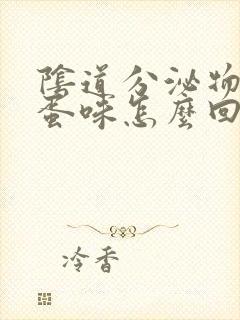 陰道分泌物
蛋味怎麼回
冷香